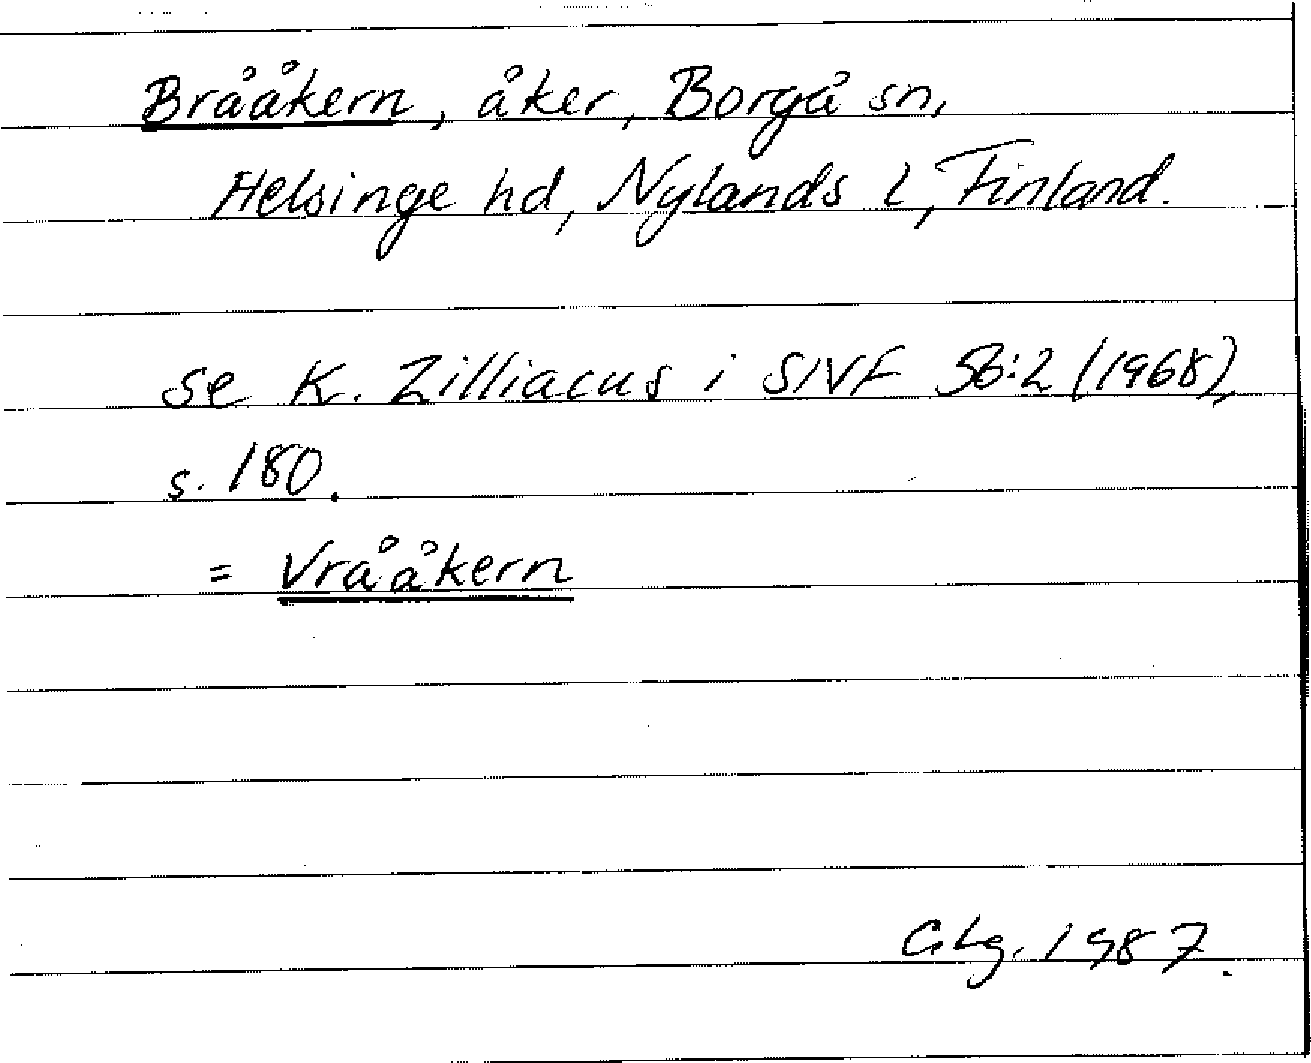 Brååkern, åker, Borgå sn,
Helsinge hd, Nylands l, Finland.
se K. Zilliacus i SNF 56:2 (1968),
s. 180.
= Vrååkern
GLg. 1987.